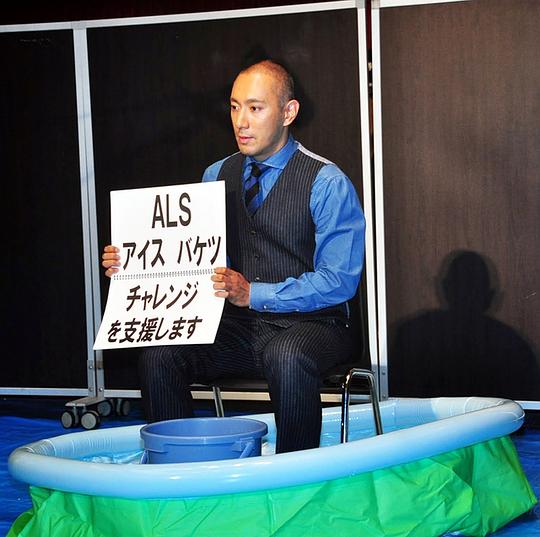 ALS
アイス バケツ
チャレンジ
を支援します